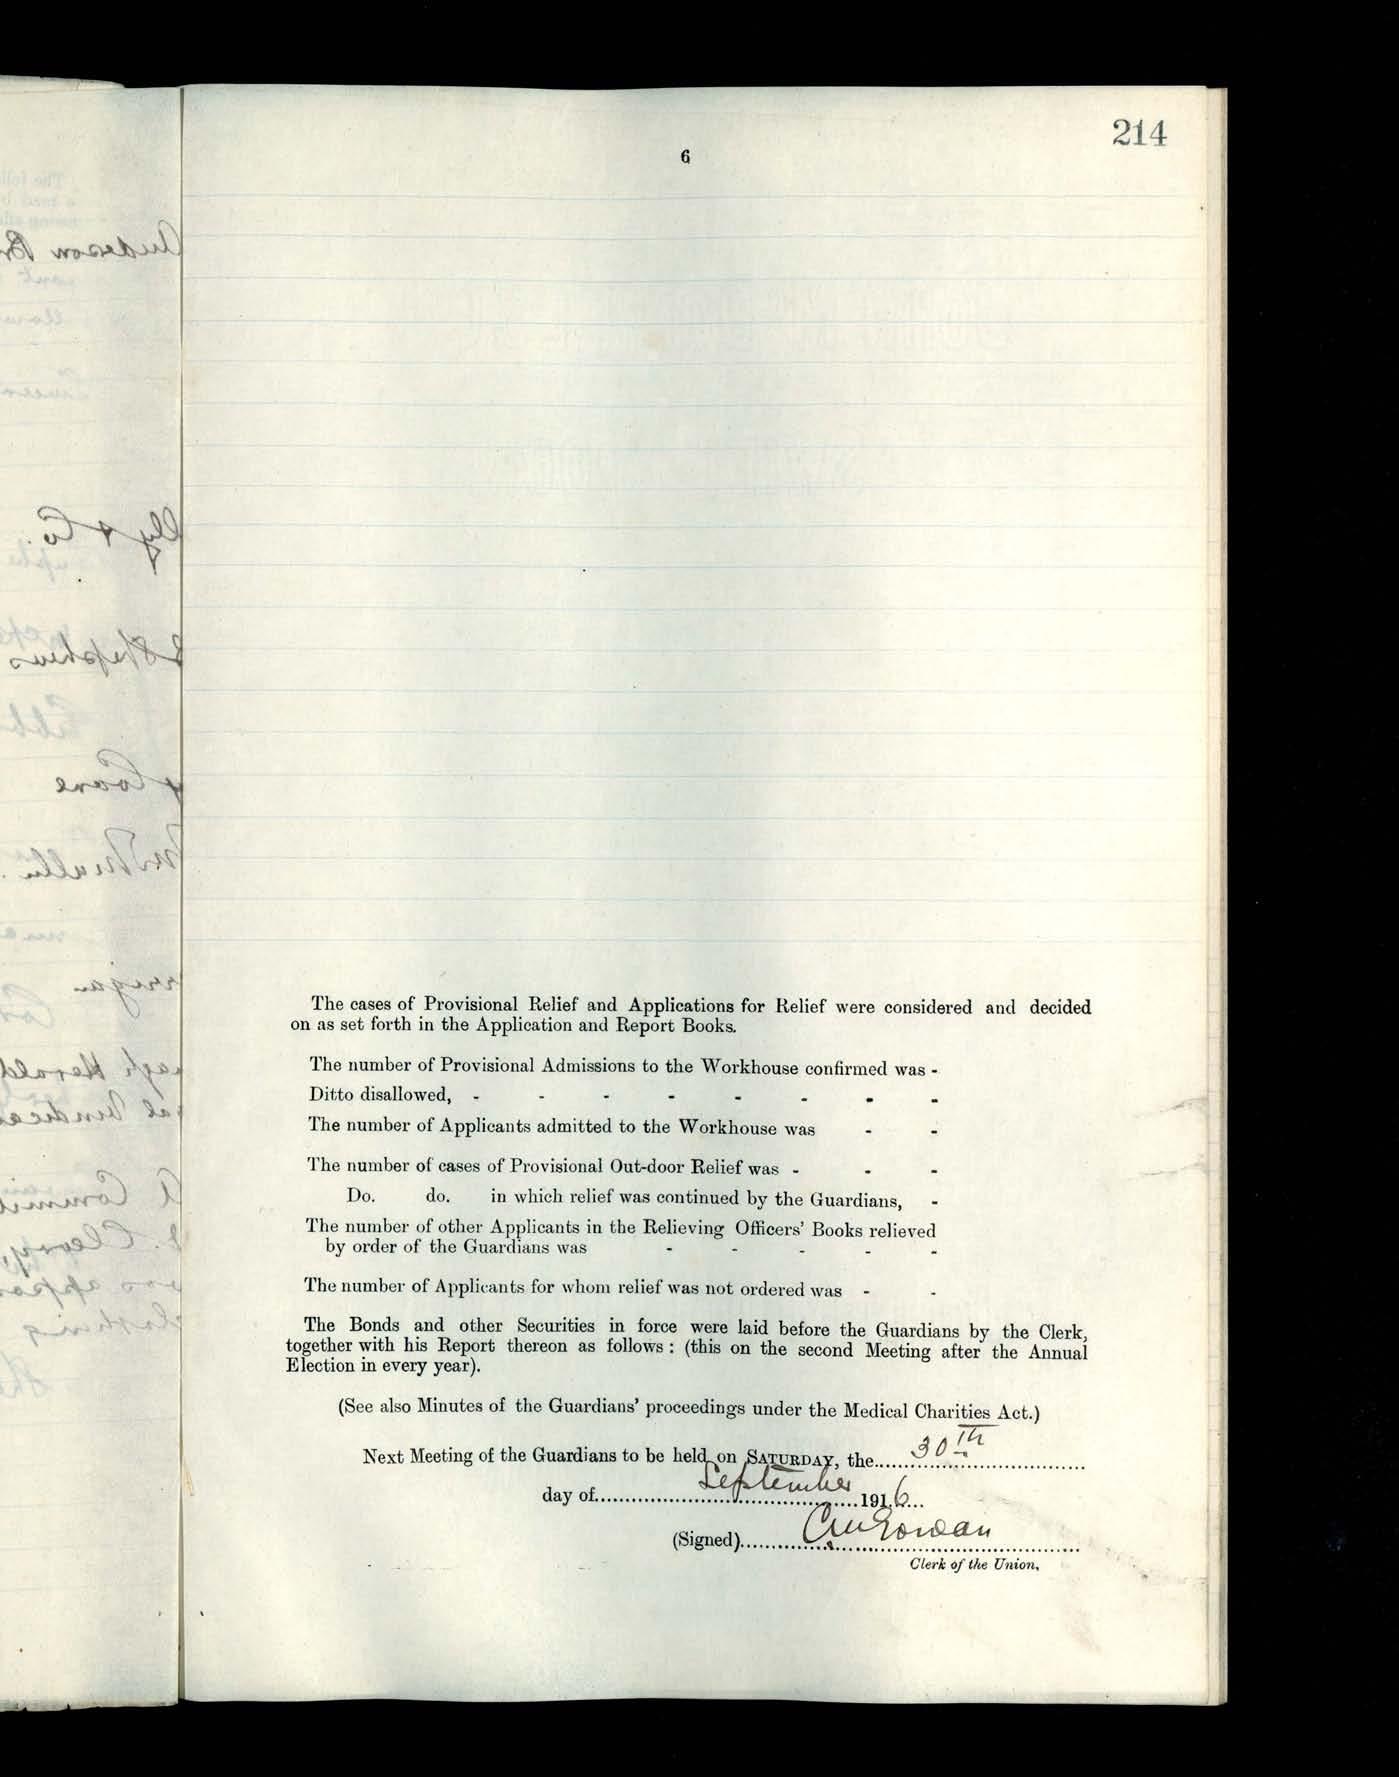 214
6
The cases of Provisional Relief and Applications for Relief were considered and decided
on as set forth in the Application and Report Books.
The number of Provisional Admissions to the Workhouse confirmed was -
Ditto disallowed, - - - - - - - -
The number of Applicants admitted to the Workhouse was - -
The number of cases of Provisional Out-door Relief was - - -
Do. do. in which relief was continued by the Guardians, -
The number of other Applicants in the Relieving Officers' Books relieved
by order of the Guardians was - - - - -
The number of Applicants for whom relief was not ordered was - -
The Bonds and other Securities in force were laid before the Guardians by the Clerk,
together with his Report thereon as follows : (this on the second Meeting after the Annual
Election in every year).
(See also Minutes of the Guardians' proceedings under the Medical Charities Act.)
Next Meeting of the Guardians to be held on SATURDAY, the 30th
day of September 1916
(Signed) C McGowan
Clerk of the Union.